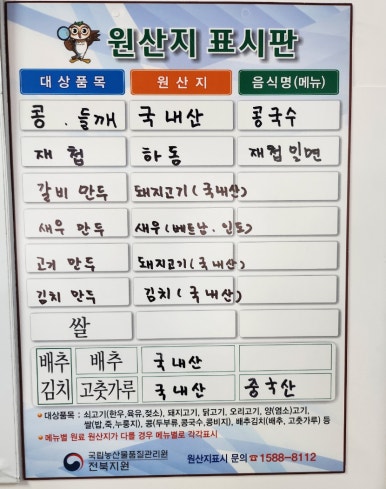 원산지 표시판
대상품목 원산지 음식명(메뉴)
콩.들깨 국내산 콩국수
재첩 하동 재첩밀면
갈비 만두 돼지고기(국내산)
새우 만두 새우(베트남.인도)
고기 만두 돼지고기(국내산)
김치 만두 김치(국내산)
쌀
배추김치 배추 국내산
고춧가루 국내산 중국산
•대상품목 : 쇠고기(한우,육우,젖소), 돼지고기, 닭고기, 오리고기, 양(염소)고기,
쌀(밥,죽,누룽지), 콩(두부류,콩국수,콩비지), 배추김치(배추, 고춧가루) 등
•메뉴별 원료 원산지가 다를 경우 메뉴별로 각각표시
국립농산물품질관리원
전북지원 원산지표시 문의 ☎1588-8112